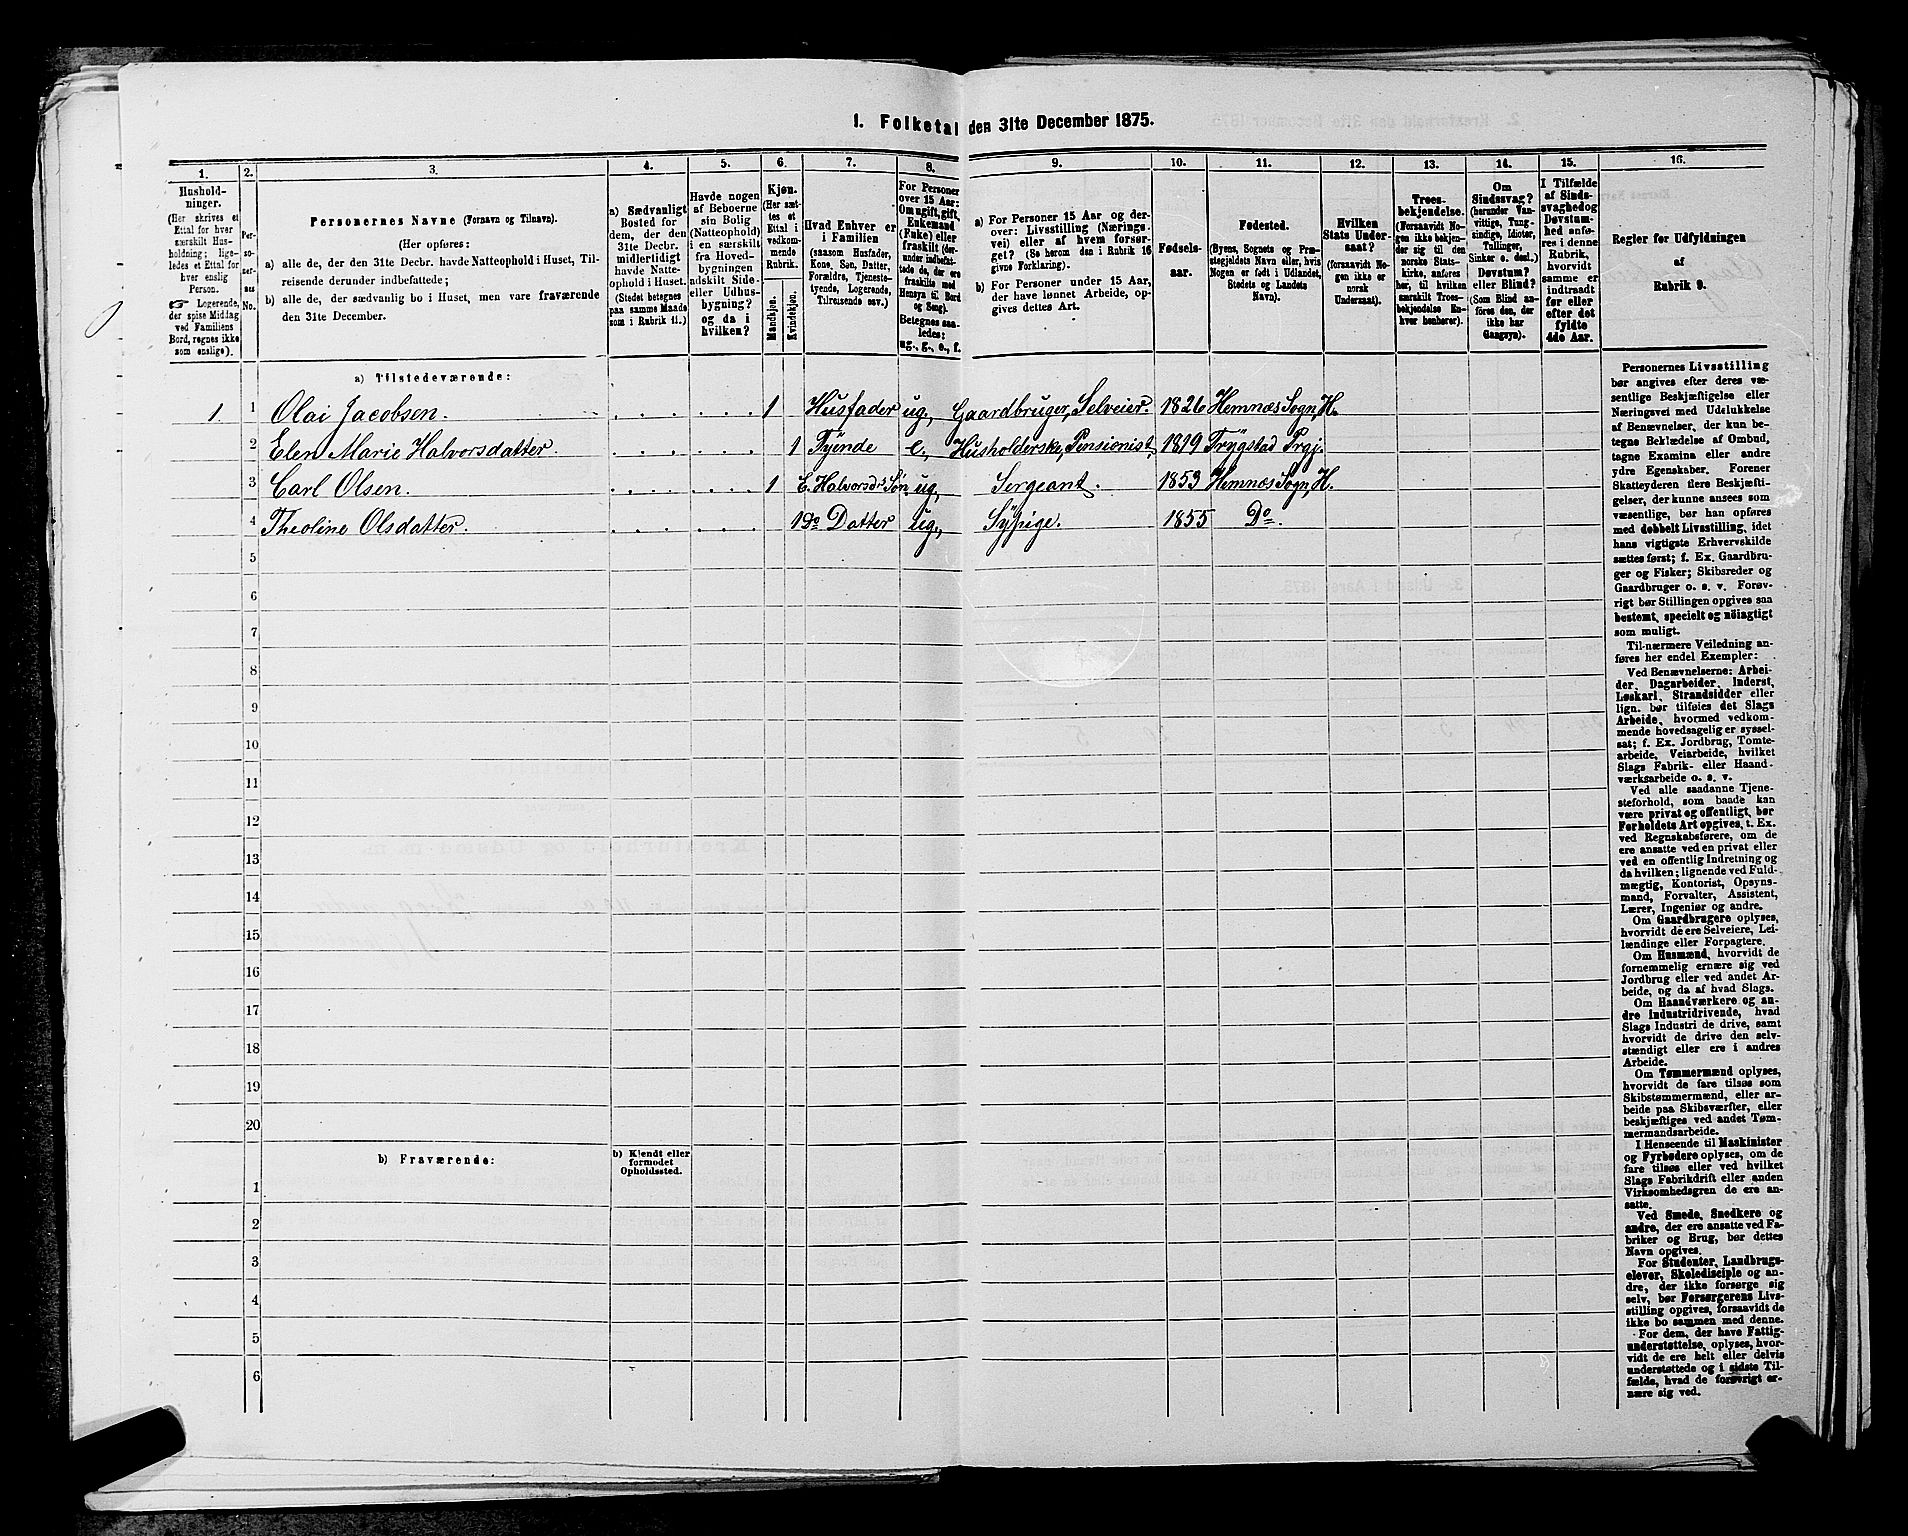 1. Folketal den 31te December 1875.
1.
Hushold-
ninger.
(Her skrives et
Ettal for hver
særskilt Hus-
holdning; lige-
ledes et Ettal for
hver enslig
Person.
☞ Logerende,
der spise Middag
ved Familiens
Bord, regnes ikke
som enslige).
2.
Per-
so-
ner-
nes
No.
3.
Personernes Navne (Fornavn og Tilnavn).
(Her opføres:
a) alle de, der den 31te Decbr. havde Natteophold i Huset, Til-
reisende derunder indbefattede;
b) alle de, der sædvanlig bo i Huset, men vare fraværende
den 31te December.
4.
a) Sædvanligt
Bosted for
dem, der den
31te Decbr.
midlertidigt
havde Natte-
ophold i Huset.
(Stedet betegnes
paa samme Maade
som i Rubrik 11.)
5.
Havde nogen
af Beboerne
sin Bolig
(Natteophold)
i en særskilt
fra Hoved-
bygningen
adskilt Side-
eller Udhus-
bygning?
og da i
hvilken?
6.
Kjøn.
(Her sæt-
tes et
Ettal i
vedkom-
mende
Rubrik.
Mandkjøn.
Kvindekjøn.
7.
Hvad Enhver er
i Familien
(saasom Husfader,
Kone, Søn, Datter,
Forældre, Tjeneste-
tyende, Logerende,
Tilreisende osv.)
8.
For Personer
over 15 Aar:
Om ugift, gift,
Enkemand
(Enke) eller
fraskilt (der-
under indbefat-
tede de, der ere
fraskilte med
Hensyn til Bord
og Seng).
Betegnes saa-
ledes:
ug., g., e., f.
9.
a) For Personer 15 Aar og der-
over: Livsstilling (Nærings-
vei) eller af hvem forsør-
get? (Se herom den i Rubrik 16
givne Forklaring).
b) For Personer under 15 Aar,
der have lønnet Arbeide, op-
gives dettes Art.
10.
Fødsels-
aar.
11.
Fødested.
(Byens, Sognets og Præ-
stegjeldets Navn eller, hvis
Nogen er født i Udlandet,
Stedets og Landets
Navn).
12.
Hvilken
Stats Under-
saat?
(forsaavidt No-
gen ikke er
norsk
Undersaat).
13.
Troes-
bekjendelse.
(Forsaavidt No-
gen ikke bekjen-
der sig til den
norske Stats-
kirke, anføres
her, til hvilken
særskilt Troes-
bekjendelse En-
hver henhører).
14.
Om
Sindssvag?
(herunder Van-
vittige, Tung-
sindige, Idioter,
Tullinger,
Sinker o. desl.)
Døvstum?
eller Blind?
(Som Blind an-
føres den, der
ikke har
Gangsyn).
15.
I Tilfælde
af Sinds-
svaghed og
Døvstum-
hed anfø-
res i denne
Rubrik,
hvorvidt
samme er
indtraadt
før eller
efter det
fyldte
4de Aar.
16.
Regler for Udfyldningen
af
Rubrik 9.
a) Tilstedeværende:
1. 1 Olai Jacobsen. 1 Husfader ug, Gaardbruger, Selveier. 1826 Hemnæs Sogn, H.
2 Elen Marie Halvorsdatter 1 Tyende e, Husholderske, Pensionist, 1819 Trygstad Prgj.
3 Carl Olsen. 1 E. Halvorsd's Søn ug, Sergeant. 1853 Hemnæs Sogn, H.
4 Theoline Olsdatter. 1 Do Datter ug, Sypige. 1855 Do.
5
6
7
8
9
10
11
12
13
14
15
16
17
18
19
20
b) Fraværende:
b) Kjendt eller
formodet
Opholdssted.
1
2
3
4
5
6
Personernes Livsstilling
bør angives efter deres væ-
sentlige Beskjæftigelse eller
Næringsvei med Udelukkelse
af Benævnelser, der kun be-
tegne Beklædelse af Ombud,
tagne Examina eller andre
ydre Egenskaber. Forener
Skatteyderen flere Beskjæfti-
gelser, der kunne ansees som
væsentlige, bør han opføres
med dobbelt Livsstilling, idet
hans vigtigste Erhvervskilde
sættes først; f. Ex. Gaardbru-
ger og Fisker; Skibsreder og
Gaardbruger o. s. v. Forøv-
rigt bør Stillingen opgives saa
bestemt, specielt og nöiagtigt
som muligt.
Til-nærmere Veiledning an-
føres her endel Exempler:
Ved Benævnelserne: Arbei-
der, Dagarbeider, Inderst,
Løskarl, Strandsidder eller
lign. bør tilføies det Slags
Arbeide, hvormed vedkom-
mende hovedsagelig er syssel-
sat; f. Ex. Jordbrug, Tomte-
arbeide, Veiarbeide, hvilket
Slags Fabrik- eller Haand-
værksarbeide o. s. v.
Ved alle saadanne Tjene-
steforhold, som baade kan
være privat og offentligt, bør
Forholdets Art opgives, t. Ex.
ved Regnskabsførere, om de
ere ansatte ved en privat eller
ved en offentlig Indretning og
da hvilken; lignende ved Fuld-
mægtig, Kontorist, Opsyns-
mand, Forvalter, Assistent,
Lærer, Ingeniør og andre.
Om Gaardbrugere oplyses,
hvorvidt de ere Selveiere, Lei-
lændinge eller Forpagtere.
Om Husmænd, hvorvidt de
fornemmelig ernære sig ved
Jordbrug eller ved andet Ar-
beide, og da af hvad Slags.
Om Haandværkere og an-
dre Industridrivende, hvad
Slags Industri de drive, samt
hvorvidt de drive den selv-
stændigt eller ere i andres
Arbeide.
Om Tømmermænd oplyses,
hvorvidt de fare tilsøs som
Skibstømmermænd, eller ar-
beide paa Skibsværfter, eller
beskjæftiges ved andet Tøm-
mermandsarbeide.
I Henseende til Maskinister
og Fyrbødere oplyses, om de
fare tilsøs eller ved hvilket
Slags Fabrikdrift eller anden
Virksomhedsgren de ere an-
satte.
Ved Smede, Snedkere og
andre, der ere ansatte ved Fa-
briker og Brug, bør dettes
Navn opgives.
For Studenter, Landbrugs-
elever, Skoledisciple og an-
dre, der ikke forsørge sig
selv, bør Forsørgerens Livs-
stilling opgives, forsaavidt de
ikke bo sammen med denne.
For dem, der have Fattig-
understøttelse, oplyses, hvor-
vidt de ere helt eller delvis
understøttede og i sidste Til-
fælde, hvad de forøvrigt er-
nære sig ved.